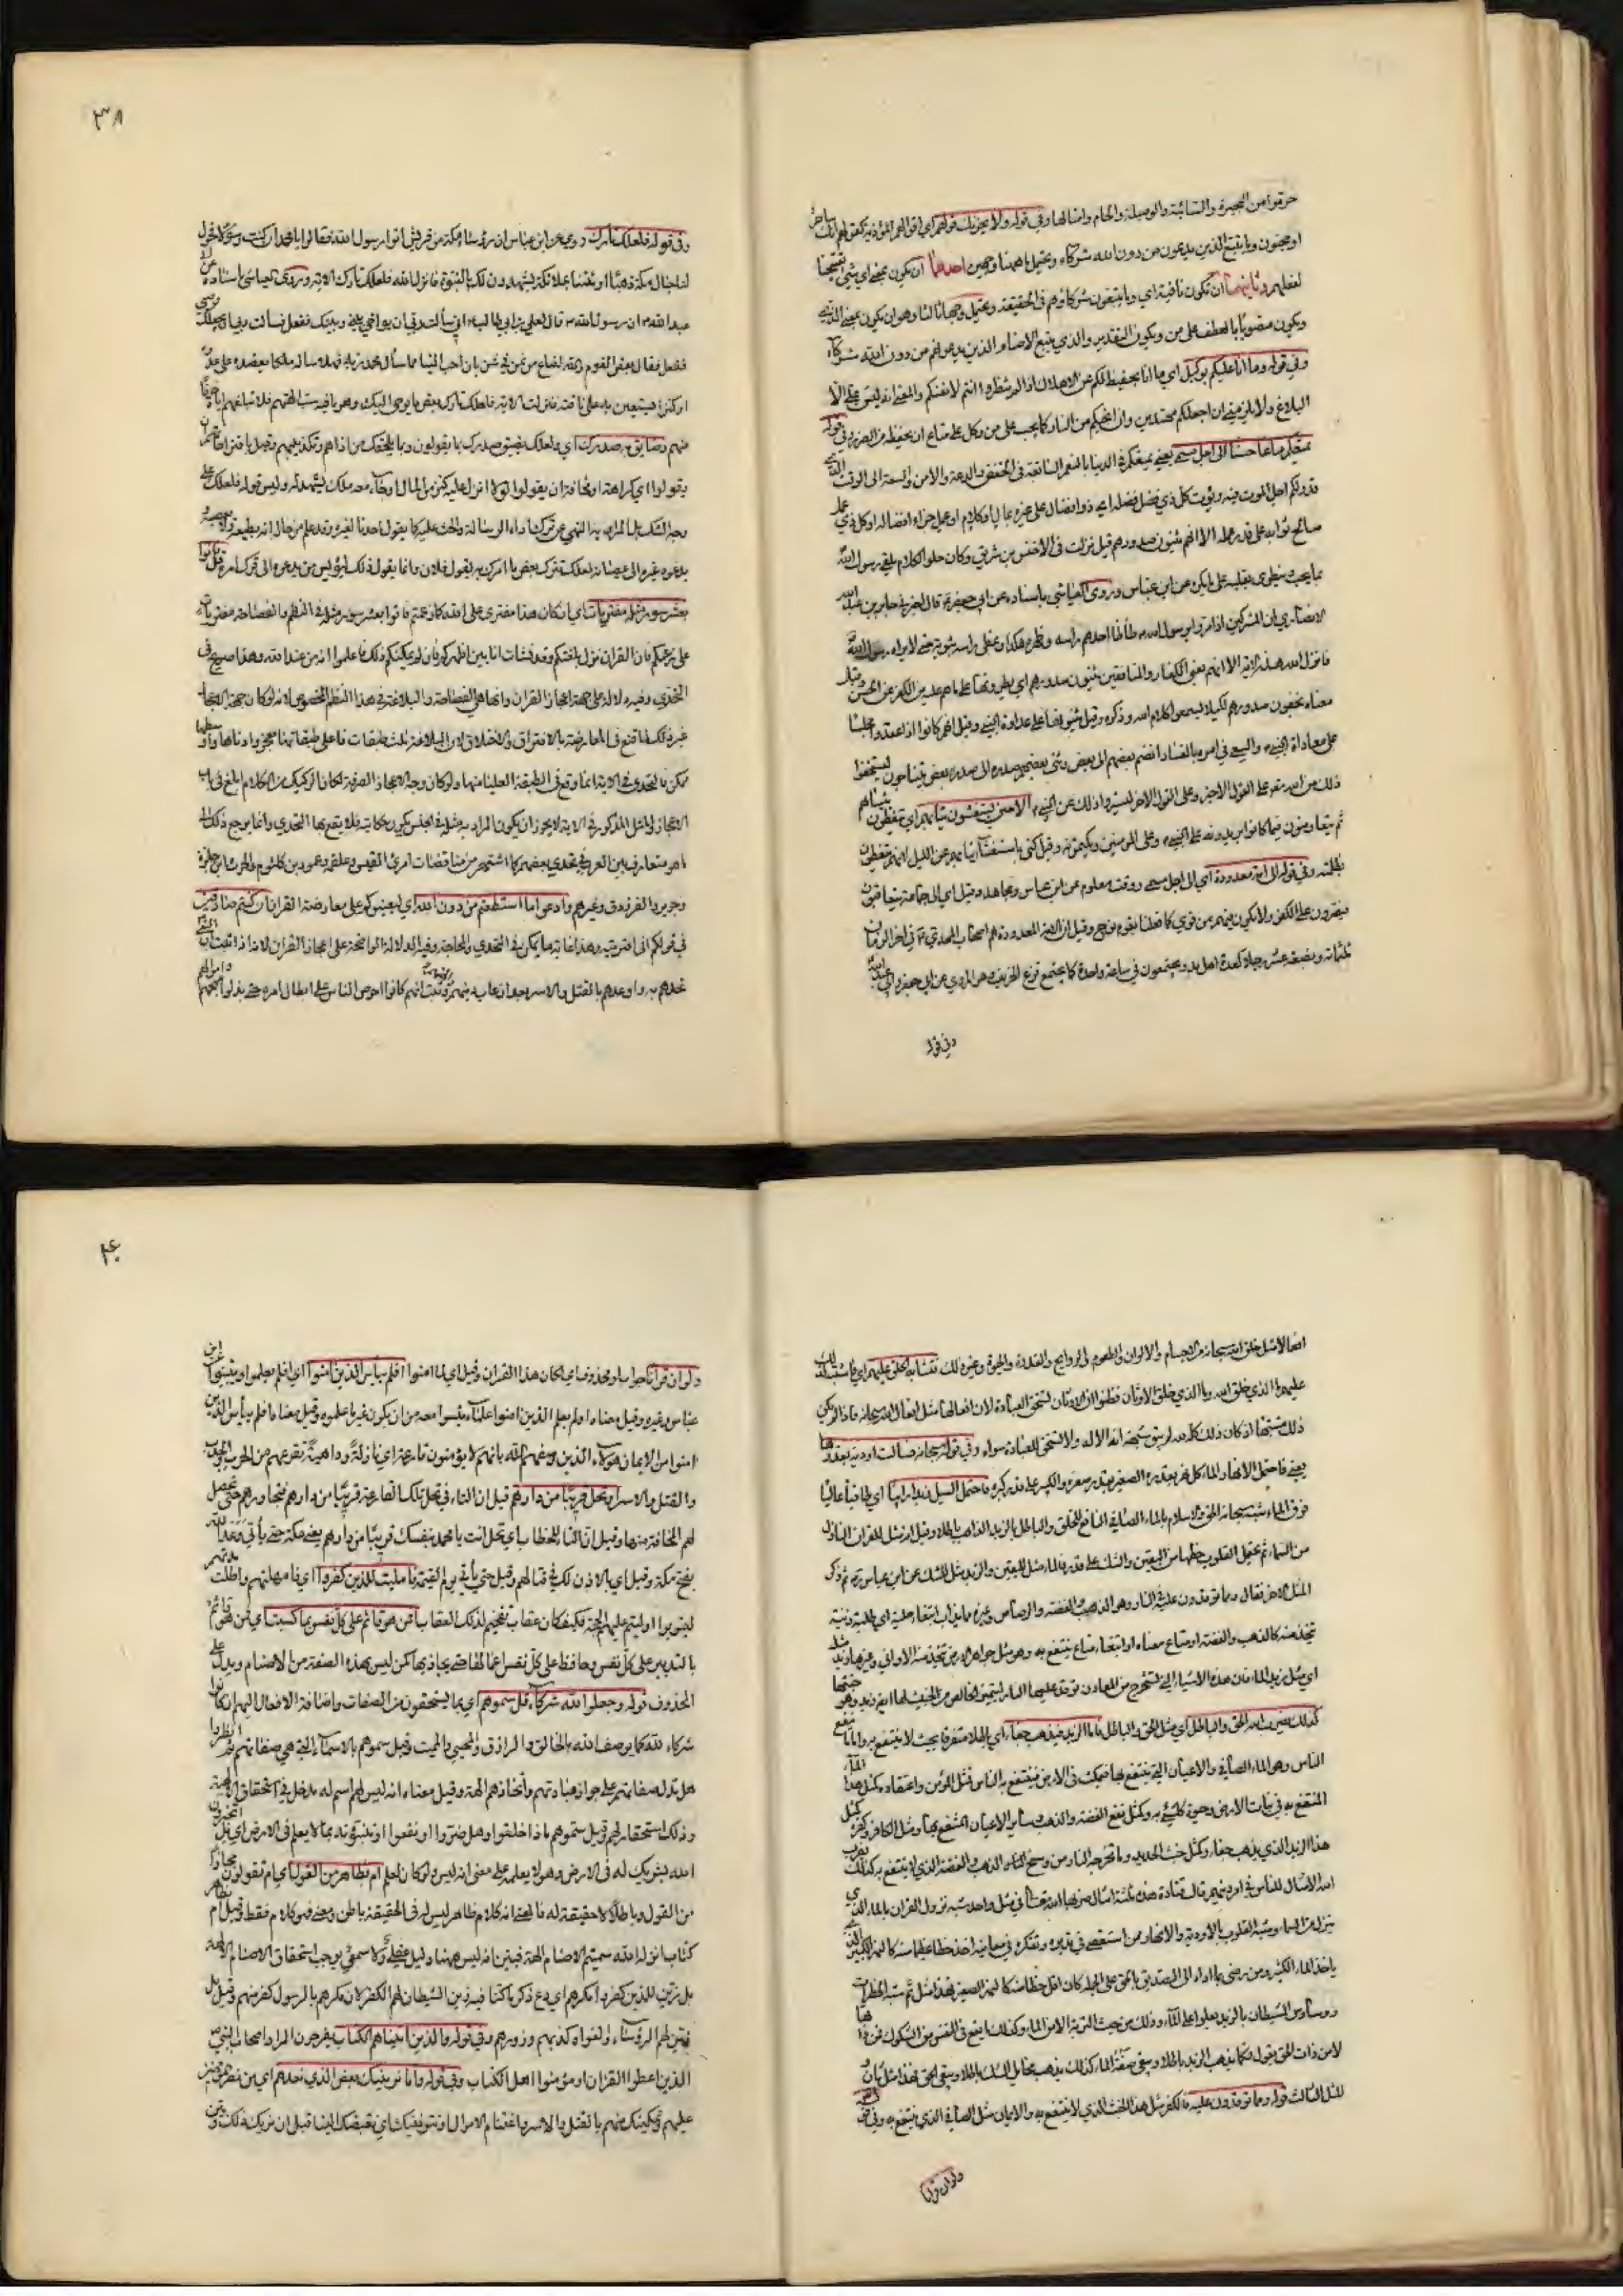 حرموا من البحيرة والسائبة والوصيلة والحام وامثالها وفي قوله ولا يحزنك قولهم اي اقوالهم المؤذية كقولهم انك ساحر
او مجنون وما يتبع الذين يدعون من دون الله شركاء ويحتمل ما هيهنا وجهين احدهما ان يكون بمعنى اي شيء
وثانيهما ان تكون نافية اي وما يتبعون شركاؤهم في الحقيقة ويحتمل وجها ثالثا وهو ان يكون بمعنى الذي
ويكون منصوبا بالعطف على من ويكون التقدير والذي يتبع الاصنام الذين يدعونهم من دون الله شركاء
وفي قوله وما انا عليكم بوكيل اي ما انا بحفيظ لكم عن الاهلاك اذا لم تنظروا انتم لانفسكم والمعنى انه ليس علي الا
البلاغ ولا يلزمني ان اجعلكم مهتدين وان انجيكم من النار كما يجب على من وكل على متاع ان يحفظه من الضرر وفي قوله
يمتعكم متاعا حسنا الى اجل مسمى يعني يمتعكم في الدنيا بالنعم السابغة في الخفض والدعة والامن والسعة الى الوقت الذي
قدر لكم اجل الموت فيه ويؤت كل ذي فضل فضله اي ذو افضال على غيره بمال او كلام او عمل جزاء افضاله او كل ذي عمل
صالح ثوابه على قدر عمله الا انهم يثنون صدورهم قيل نزلت في الاخنس بن شريق وكان حلو الكلام يلقى رسول الله
بما يحب وينطوي بقلبه على ما يكره عن ابن عباس وروى العياشي باسناده عن ابي جعفر قال اخبرني جابر بن عبد الله
الانصاري ان المشركين اذا مروا برسول الله طأطأ احدهم راسه وظهره هكذا وغطى راسه بثوبه حتى لا يراه رسول الله
فانزل الله هذه الاية الا انهم يعني الكفار والمنافقين يثنون صدورهم اي يطوونها على ما هم عليه من الكفر عن الحسن وقيل
معناه يحنون صدورهم لكيلا يسمعوا كلام الله وذكره وقيل يثنونها على عداوة النبي وقيل انهم كانوا اذا عقدوا مجلسا
على معاداة النبي والسعي في امره بالفساد انضم بعضهم الى بعض وثنى بعضهم صدره الى صدر بعض يتناجون ليستخفوا
ذلك من الله معه على القول الاخير وعلى القول الاخر ليستروا ذلك عن النبي الا حين يستغشون ثيابهم اي يتغطون بثيابهم
ثم يتفاوضون فيما كانوا يدبرونه على النبي وعلى المؤمنين ويكتمونه وقيل كنى باستغشاء ثيابهم عن الليل لانهم يتغطون
بظلمته وفي قوله الى امة معدودة اي الى اجل مسمى ووقت معلوم عن ابن عباس ومجاهد وقيل اي الى جماعة يتعاقبون
فيصرون على الكفر ولا يكون فيهم من يؤمن كما فعلنا بقوم نوح وقيل ان الامة المعدودة هم اصحاب المهدي في اخر الزمان
ثلثمائة وبضعة عشر رجلا كعدة اهل بدر ويجتمعون في ساعة واحدة كما يجتمع قزع الخريف وهو المروي عن ابي جعفر وابي عبد الله
وفي قوله
٣٨
وفي قوله فلعلك تارك روي عن ابن عباس ان رؤساء مكة من قريش اتوا رسول الله فقالوا يا محمد ان كنت رسولا فحول
لنا جبال مكة ذهبا او ائتنا بملائكة يشهدون لك بالنبوة فانزل الله فلعلك تارك الاية وروى العياشي باسناده عن
عبد الله ان رسول الله قال لعلي بن ابي طالب اني سألت ربي ان يواخي بيني وبينك ففعل فسألت ربي ان يجعلك وصيي
ففعل فقال بعض القوم والله لصاع من تمر في شن بال احب الينا مما سأل محمد ربه فهلا سأله ملكا يعضده على عدوه
او كنزا يستعين به على فاقته فنزلت الاية فلعلك تارك بعض ما يوحى اليك
منهم وضائق به صدرك اي ولعلك يضيق صدرك مما يقولون وبما يلحقك من اذاهم وتكذيبهم
يقولوا اي كراهة او مخافة ان يقولوا لولا انزل عليه كنز من المال او جاء معه ملك يشهد له وليس قوله فلعلك على
وجه الشك بل المراد به النهي عن ترك اداء الرسالة والحث عليه كما يقول احدنا لغيره وقد علم من حاله انه يطيعه ولا يعصيه
يدعوه غيره الى عصيانه لعلك تترك بعض ما امرك به لقول فلان وانما يقول ذلك ليؤيس من يدعوه الى ترك امره قل فاتوا
بعشر سور مثله مفتريات اي ان كان هذا مفترى على الله كما زعمتم فاتوا بعشر سور مثله في النظم والفصاحة مفتريات
على زعمكم فان القران نزل بلغتكم وقد نشأت انا بين اظهركم فان لم يمكنكم ذلك فاعلموا انه من عند الله وهذا صريح في
التحدي وفيه دلالة على جهة اعجاز القران وانها هي الفصاحة والبلاغة في هذا النظم المخصوص لانه لو كان جهة الاعجاز
غير ذلك لما قنع في المعارضة بالافتراء والاختلاق لان البلاغة ثلث طبقات فاعلى طبقاتها معجز وادناها واوسطها
ممكن فالتحدي في الاية انما وقع في الطبقة العليا منها ولو كان وجه الاعجاز الصرفة لكان الركيك من الكلام ابلغ في باب
الاعجاز والمثل المذكور في الاية لا يجوز ان يكون المراد به مثله في الجنس لان مثله في الجنس يكون حكايته فلا يقع بها التحدي وانما يرجع ذلك الى
ما هو متعارف بين العرب في تحدي بعضهم بعضا كما اشتهر من مناقضات امرئ القيس وعلقمة وعمرو بن كلثوم والحرث بن حلزة
وجرير والفرزدق وغيرهم وادعوا من استطعتم من دون الله اي ليعينوكم على معارضة القران ان كنتم صادقين
في قولكم اني افتريته وهذا غاية ما يمكن في التحدي والمحاجة وفيه الدلالة الواضحة على اعجاز القران لانه اذا ثبت ان النبي
تحداهم به واوعدهم بالقتل والاسر بعد ان عاب دينهم وثبت انهم كانوا احرص الناس على ابطال امره حتى بذلوا مهجهم واموالهم
عليهم الذي خلق الله وما الذي خلق الاوثان فظنوا ان الاوثان تستحق العبادة لان افعالها مثل افعال الله سبحانه فاذا لم يكن
ذلك مشتبها اذ كان ذلك كله لله لم يبق شبهة انه الاله ولا يستحق العبادة سواه وفي قوله سبحانه فسالت اودية بقدرها
يعني فاحتمل الانهار الماء كل نهر بقدره الصغير بقدر صغره والكبير على قدر كبره فاحتمل السيل زبدا رابيا اي طافيا عاليا
فوق الماء شبه سبحانه الحق والاسلام بالماء الصافي النافع للخلق والباطل بالزبد الذاهب باطلا وقيل انه مثل للقران النازل
من السماء ثم تحتمل القلوب حظها من اليقين والشك على قدرها فالماء مثل لليقين والزبد مثل للشك عن ابن عباس ثم ذكر
المثل الاخر فقال ومما توقدون عليه في النار وهو الذهب والفضة والرصاص وغيره مما يذاب ابتغاء حلية اي طلب زينة
تتخذ منه كالذهب والفضة او متاع معناه او ابتغاء متاع ينتفع به وهو مثل جواهر الارض تتخذ منه الاواني وغيرها زبد مثله
اي مثل زبد الماء فان هذه الاشياء التي تستخرج من المعادن توقد عليها النار ليتميز الخالص من الخبيث لها ايضا زبد وهو خبثها
كذلك يضرب الله الحق والباطل اي مثل الحق والباطل فاما الزبد فيذهب جفاء اي باطلا متفرقا بحيث لا ينتفع به واما ما ينفع
الناس وهو الماء الصافي والاعيان التي ينتفع بها فيمكث في الارض فينتفع به الناس فمثل المؤمن واعتقاده كمثل هذا الماء
المنتفع به في نبات الارض وحيوة كل شيء به وكمثل نفع الفضة والذهب وسائر الاعيان المنتفع بها ومثل الكافر وكفره كمثل
هذا الزبد الذي يذهب جفاء وكمثل خبث الحديد وما تخرجه النار من وسخ الذهب والفضة الذي لا ينتفع به كذلك يضرب
الله الامثال للناس في امر دينهم قال قتادة هذه ثلثة امثال ضربها الله تعالى في مثل واحد شبه نزول القران بالماء الذي
ينزل من السماء وشبه القلوب بالاودية والانهار فمن استقصى في تدبره وتفكر في معانيه اخذ حظا عظيما منه كالنهر الكبير الذي
ياخذ الماء الكثير ومن رضي بما اداه الى التصديق بالحق على الجملة كان اقل حظا منه كالنهر الصغير فهذا مثل ثم شبه الخطرات
ووساوس الشيطان بالزبد يعلو على الماء وذلك من خبث التربة لا من الماء وكذلك ما يقع في النفس من الشكوك فمن ذاتها
لا من ذات الحق يقول فكما يذهب الزبد باطلا ويبقى صفو الماء كذلك يذهب مخايل الشك باطلا ويبقى الحق فهذا مثل ثان
المثل الثالث قوله ومما توقدون عليه فالكفر مثل هذا الخبث الذي لا ينتفع به والايمان مثل الصافي الذي ينتفع به وفي قوله
ولو ان قرانا
٤٠
ولو ان قرانا جواب لو محذوف اي لكان هذا القران وقيل اي لما امنوا افلم ييأس الذين امنوا اي افلم يعلموا ويتبينوا عن ابن
عباس وغيره وقيل معناه اولم يعلم الذين امنوا علما يئسوا معه من ان يكون غير ما علموه وقيل معناه افلم ييأس الذين
امنوا من الايمان هؤلاء الذين وصفهم الله بانهم لا يؤمنون قارعة اي نازلة وداهية تقرعهم من الحرب والجدب
والقتل والاسر او تحل قريبا من دارهم قيل ان التاء في تحل لتلك القارعة قريبا من دارهم فتجاورهم حتى تحصل
لهم المخافة منها وقيل ان التاء للخطاب اي تحل انت يا محمد بنفسك قريبا من دارهم يعني مكة حتى يأتي وعد الله
بفتح مكة وقيل اي بالاذن لك في قتالهم وقيل حتى يأتي يوم القيمة فامليت للذين كفروا اي فامهلتهم واطلت مدتهم
ليتوبوا او ليتم عليهم الحجة فكيف كان عقاب تفخيم لذلك العقاب افمن هو قائم على كل نفس بما كسبت اي افمن هو قائم
بالتدبير على كل نفس وحافظ على كل نفس اعمالها حتى يجازيها كمن ليس بهذه الصفة من الاصنام ويدل على
المحذوف قوله وجعلوا لله شركاء قل سموهم اي بما يستحقون من الصفات واضافة الافعال اليهم ان كانوا
شركاء لله كما يوصف الله بالخالق والرازق والمحيي والمميت وقيل سموهم بالاسماء التي هي صفاتهم ثم انظروا
هل تدل صفاتهم على جواز عبادتهم واتخاذهم الهة وقيل معناه انه ليس لهم اسم له مدخل في استحقاق الالهية
وذلك استحقار لهم وقيل سموهم ماذا خلقوا وهل ضروا او نفعوا ام تنبئونه بما لا يعلم في الارض اي بل اتخبرون
الله بشريك له في الارض وهو لا يعلمه على معنى انه ليس ولو كان لعلم ام بظاهر من القول اي ام تقولون مجازا
من القول وباطلا لا حقيقة له فالمعنى انه كلام ظاهر ليس له في الحقيقة باطن ومعنى فهو كلام فقط وقيل ام بظاهر
كتاب انزل الله سميتم الاصنام الهة فبين انه ليس هيهنا دليل عقلي ولا سمعي يوجب استحقاق الاصنام الالهية
بل زين للذين كفروا مكرهم اي دع ذكر ما كنا فيه زين الشيطان لهم الكفر لان مكرهم بالرسول كفر منهم وقيل بل
زين لهم الرؤساء والغواة كذبهم وزورهم وفي قوله والذين اتيناهم الكتاب يفرحون المراد اصحاب النبي
الذين اعطوا القران او مؤمنوا اهل الكتاب وفي قوله واما نرينك بعض الذي نعدهم اي من نصر المؤمنين
عليهم وتمكينك منهم بالقتل والاسر واغتنام الاموال او نتوفينك اي نقبضك الينا قبل ان نريك ذلك